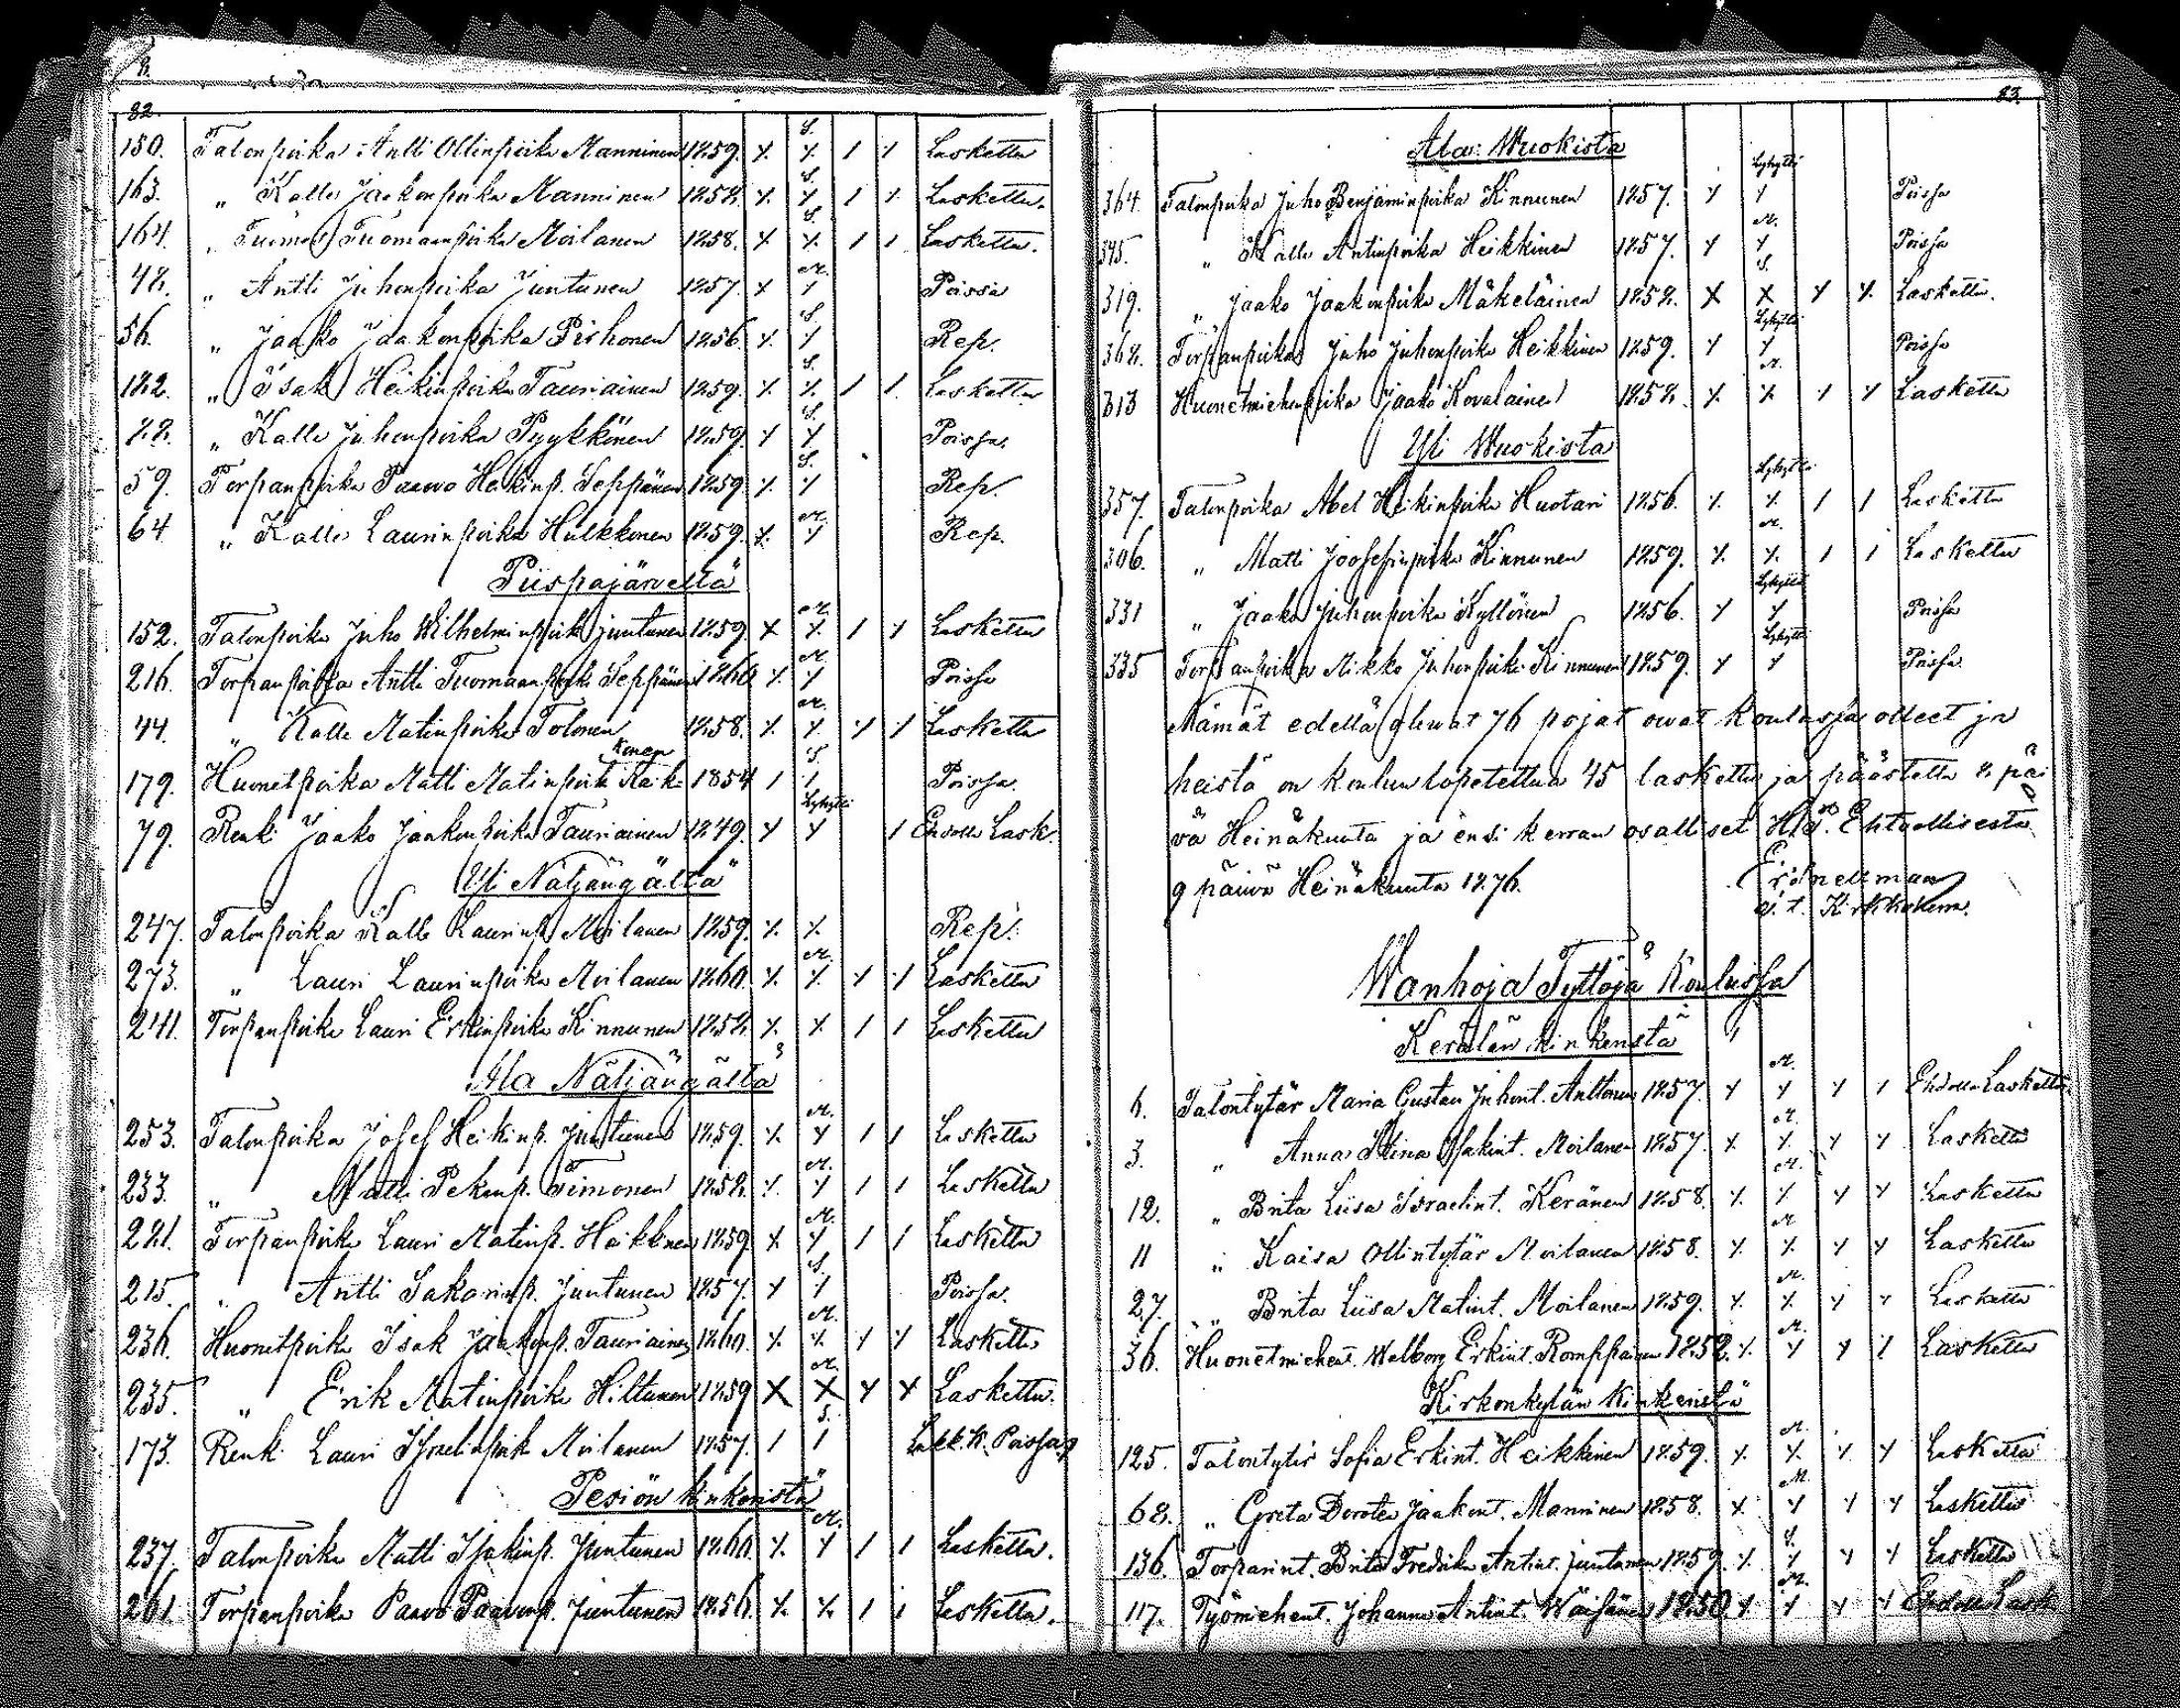 82.
150. Talonpoika Antti Ollinpoika Manninen 1859. S. Laskettu
163. „ Kalle Jaakonpoika Manninen 1858. S. Laskettu.
164. „ Tuomas Tuomaanpoika Moilanen 1858. S. Laskettu.
48. „ Antti Juhonpoika Juntunen 1857. M. Poissa
56. „ Jaakko Jaakonpoika Pirhonen 1856. S. Rep.
182. „ Isak Heikinpoika Tauriainen 1859. S. Laskettu
„ Kalle Juhonpoika Pyykkönen 1859. S. Poissa.
59. Torpanpoika Paavo Heikinp. Seppänen 1859. S. Rep.
64. „ Kalle Laurinpoika Hulkkonen 1859. M. Rep.
Piispajärveltä
152. Talonpoika Juho Wilhelminpoik Juntunen 1859. M. Laskettu
216. Torpanpoika Antti Tuomaanpoik Seppänen 1860 M. Poissa
44. „ Kalle Matinpoika Tolonen 1858. M. Laskettu
179. Huonetpoika Matti Matinpoik 1854 S. Poissa.
79. Renki Jaako Jaakonpoika Tauriainen 1849. Lyhyttä Ehdolla Lask.
Yli Näljängältä
247. Talonpoika Kalle Laurinp. Moilanen 1859. Rep.
273. „ Lauri Laurinpoika Moilanen 1860. M. Laskettu
241. Torpanpoika Lauri Erkinpoika Kinnunen 1858. Laskettu
Ala Näljängältä
253. Talonpoika Josef Heikinp. Juntunen 1859. M. Laskettu
233. „ Matti Pekanp. Timonen 1858. M. Laskettu
221. Torpanpoika Lauri Matinp. Heikkinen 1859. M. Laskettu
215. „ Antti Sakarinp. Juntunen 1857. S. Poissa.
236. Huonetpoika Isak Jaakonp. Tauriainen 1860. M. Laskettu
235. „ Erik Matinpoika Hiltunen 1859 M. Laskettu.
173. Renki Lauri Israelinpoik Moilanen 1857. S. Poissa
Pesiön kinkeristä
237. Talonpoika Matti Isakinp. Juntunen 1860. M. Laskettu.
261. Torpanpoika Paavo Paavonp. Juntunen 1856. Laskettu.
83.
Ala Wuokista
364. Talonpoika Juho Benjaminpoika Kinnunen 1857. Lyhyttä Poissa
345. „ Kalle Antinpoika Heikkinen 1857. M. Poissa
319. „ Jaako Jaakonpoika Mäkeläinen 1858. S. Laskettu.
368. Torpanpoika Juho Juhonpoika Heikkinen 1859. Lyhyttä Poissa
313 Huonetmiehenpoika Jaako Kovalainen 1858. M. Laskettu
Yli Wuokista
357. Talonpoika Abel Heikinpoika Huotari 1856. Lyhyttä Laskettu
306. „ Matti Joosepinpoika Kinnunen 1859. M. Laskettu
331 „ Jaako Juhonpoika Kyllönen 1856. Lyhyttä Poissa
335 Torpanpoika Mikko Juhonpoika Kinnunen 1859. Lyhyttä Poissa
Nämät edellä olewat 76 pojat owat koulussa olleet ja
heistä on koulun lopetettua 45 laskettu ja päästetty 8 päi
vä Heinäkuuta ja ensi kerran osalliset H. Ehtoollisesta
9 päivä Heinäkuuta 1876.
v. t. Kirkkoherra.
Wanhoja Tyttöjä Koulussa
Kerälän kinkeristä
6. Talontytär Maria Gustava Juhont. Anttonen 1857. M. Ehdolla Laskettu
3. „ Anna Stina Isakint. Moilanen 1857. M. Laskettu
12. „ Brita Liisa Israelint. Keränen 1858. M. Laskettu
11 „ Kaisa Ollintytär Moilanen 1858. M. Laskettu
27. „ Brita Liisa Matint. Moilanen 1859. M. Laskettu
36. Huonetmiehent. Walborg Erkint. Romppainen 1858. M. Laskettu
Kirkonkylän kinkeristä
125. Talontytär Sofia Erkint. Heikkinen 1859. M. Laskettu
68. „ Greta Dorotea Jaakont. Manninen 1858. M. Laskettu
136. Torparint. Brita Fredrika Antint. Juntunen 1859. S. Laskettu
117. Työmiehent. Johanna Antint. Wäisänen 1850. M. Ehdolla Lask